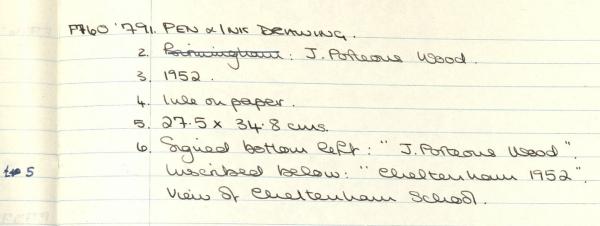 F760 '79 1. PEN & INK DRAWING.
2. Birmingham: J. Porteous Wood.
3. 1952.
4. Ink on paper.
5. 27.5 x 34.8 cms.
6. Signed bottom left: "J. Porteous Wood".
Inscribed below: "Cheltenham 1952".
5 View of Cheltenham School.